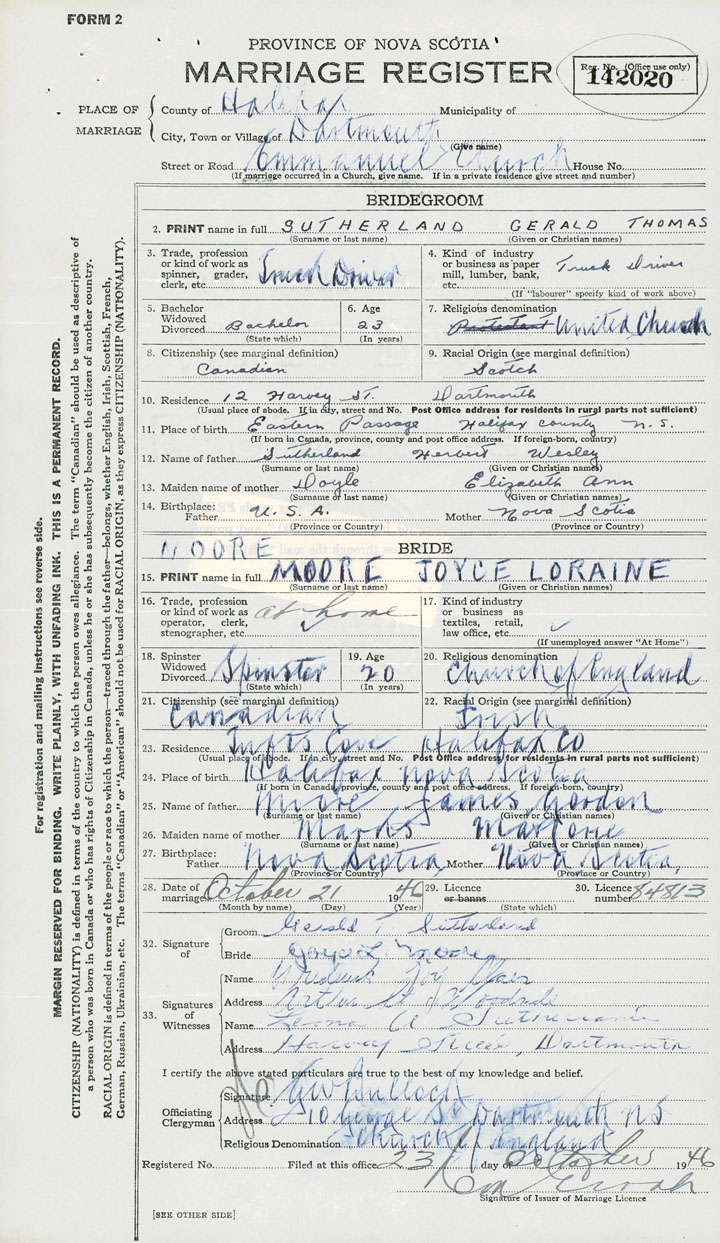 FORM 2
PROVINCE OF NOVA SCOTIA
MARRIAGE REGISTER
Reg. No. (Office use only)
142020
PLACE OF MARRIAGE
County of Halifax Municipality of
City, Town or Village of Dartmouth
(Give name)
Street or Road Emmanuel Church House No.
(If marriage occurred in a Church, give name. If in a private residence give street and number)
BRIDEGROOM
2. PRINT name in full SUTHERLAND GERALD THOMAS
(Surname or last name) (Given or Christian names)
3. Trade, profession or kind of work as spinner, grader, clerk, etc. Truck Driver
4. Kind of industry or business as paper mill, lumber, bank, etc. Truck driver
(If "labourer" specify kind of work above)
5. Bachelor Widowed Divorced Bachelor
(State which)
6. Age 23
(In years)
7. Religious denomination Protestant United Church
8. Citizenship (see marginal definition)
Canadian
9. Racial Origin (see marginal definition)
Scotch
10. Residence 12 Harvey St. Dartmouth
(Usual place of abode. If in city, street and No. Post Office address for residents in rural parts not sufficient)
11. Place of birth Eastern Passage Halifax County N.S.
(If born in Canada, province, county and post office address. If foreign-born, country)
12. Name of father Sutherland Herbert Wesley
(Surname or last name) (Given or Christian names)
13. Maiden name of mother Doyle Elizabeth Ann
(Surname or last name) (Given or Christian names)
14. Birthplace: Father U.S.A. Mother Nova Scotia
(Province or Country) (Province or Country)
MOORE
BRIDE
15. PRINT name in full MOORE JOYCE LORAINE
(Surname or last name) (Given or Christian names)
16. Trade, profession or kind of work as operator, clerk, stenographer, etc. at home
17. Kind of industry or business as textiles, retail, law office, etc.
(If unemployed answer "At Home")
18. Spinster Widowed Divorced Spinster
(State which)
19. Age 20
(In years)
20. Religious denomination
Church of England
21. Citizenship (see marginal definition)
Canadian
22. Racial Origin (see marginal definition)
Irish
23. Residence Tufts Cove Halifax Co
(Usual place of abode. If in city, street and No. Post Office address for residents in rural parts not sufficient)
24. Place of birth Halifax Nova Scotia
(If born in Canada, province, county and post office address. If foreign-born, country)
25. Name of father Moore James Gordon
(Surname or last name) (Given or Christian names)
26. Maiden name of mother Marjorie
(Surname or last name) (Given or Christian names)
27. Birthplace: Father Nova Scotia, Mother Nova Scotia,
(Province or Country) (Province or Country)
28. Date of marriage October 21 1946
(Month by name) (Day) (Year)
29. Licence or banns
(State which)
30. Licence number 84813
32. Signature of
Groom Gerald T. Sutherland
Bride Joyce L. Moore
33. Signatures of Witnesses
Name
Address
Name A Sutherland
Address Harvey Street, Dartmouth
I certify the above stated particulars are true to the best of my knowledge and belief.
Officiating Clergyman
Signature
Address Dartmouth NS
Religious Denomination Church of England
Registered No. Filed at this office 23 day of October 1946
Signature of Issuer of Marriage Licence
[SEE OTHER SIDE]
For registration and mailing instructions see reverse side.
MARGIN RESERVED FOR BINDING. WRITE PLAINLY, WITH UNFADING INK. THIS IS A PERMANENT RECORD.
CITIZENSHIP (NATIONALITY) is defined in terms of the country to which the person owes allegiance. The term "Canadian" should be used as descriptive of
a person who was born in Canada or who has rights of Citizenship in Canada, unless he or she has subsequently become the citizen of another country.
RACIAL ORIGIN is defined in terms of the people or race to which the person—traced through the father—belongs, whether English, Irish, Scottish, French,
German, Russian, Ukrainian, etc. The terms "Canadian" or "American" should not be used for RACIAL ORIGIN, as they express CITIZENSHIP (NATIONALITY).